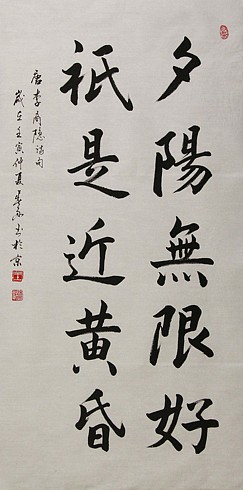 夕陽無限好
祇是近黄昏
唐李商隐诗句
歲在壬寅仲夏
书於京